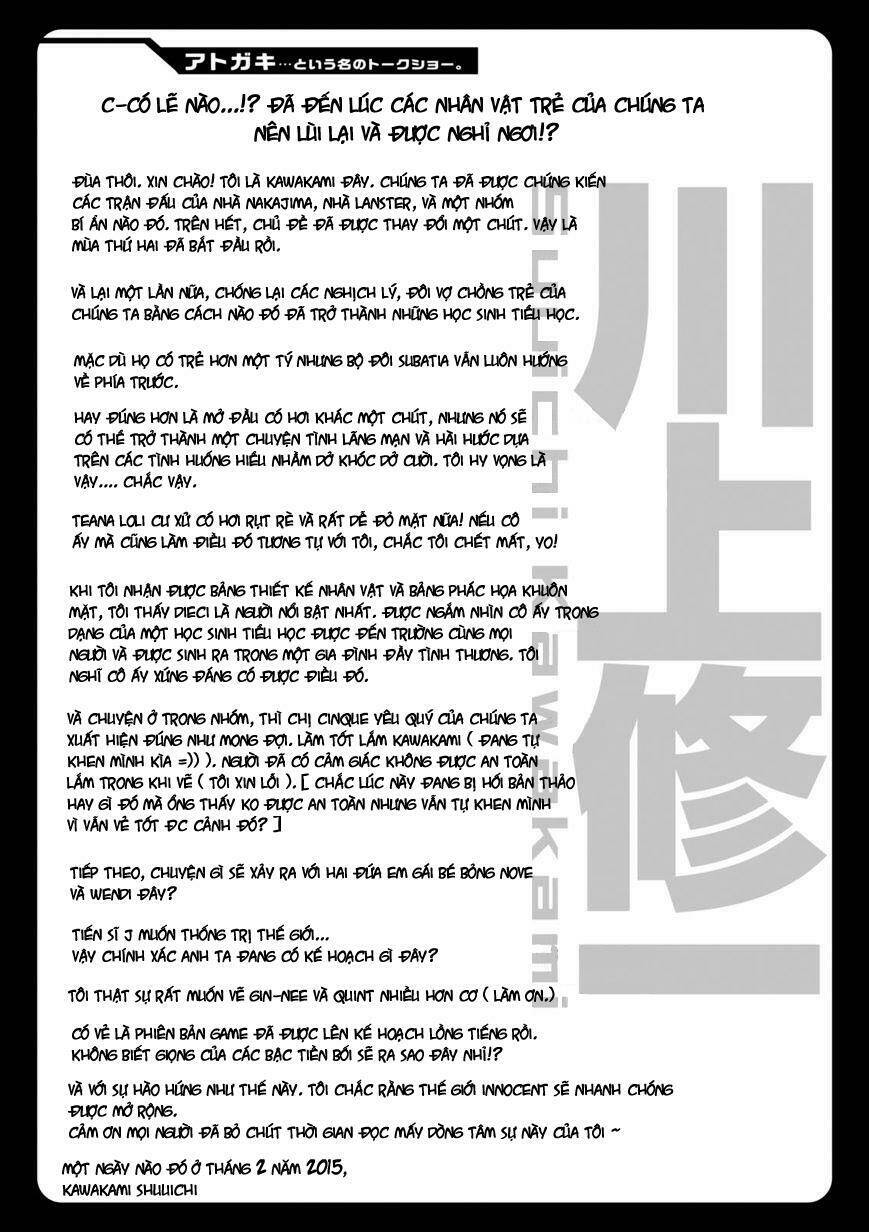 アトガキ…という名のトークショー。
C-CÓ LẼ NÀO...!? ĐÃ ĐẾN LÚC CÁC NHÂN VẬT TRẺ CỦA CHÚNG TA
NÊN LÙI LẠI VÀ ĐƯỢC NGHỈ NGƠI!?
ĐÙA THÔI. XIN CHÀO! TÔI LÀ KAWAKAMI ĐÂY. CHÚNG TA ĐÃ ĐƯỢC CHỨNG KIẾN
CÁC TRẬN ĐẤU CỦA NHÀ NAKAJIMA, NHÀ LANSTER, VÀ MỘT NHÓM
BÍ ẨN NÀO ĐÓ. TRÊN HẾT, CHỦ ĐỀ ĐÃ ĐƯỢC THAY ĐỔI MỘT CHÚT. VẬY LÀ
MÙA THỨ HAI ĐÃ BẮT ĐẦU RỒI.
VÀ LẠI MỘT LẦN NỮA, CHỐNG LẠI CÁC NGHỊCH LÝ, ĐÔI VỢ CHỒNG TRẺ CỦA
CHÚNG TA BẰNG CÁCH NÀO ĐÓ ĐÃ TRỞ THÀNH NHỮNG HỌC SINH TIỂU HỌC.
MẶC DÙ HỌ CÓ TRẺ HƠN MỘT TÝ NHƯNG BỘ ĐÔI SUBATIA VẪN LUÔN HƯỚNG
VỀ PHÍA TRƯỚC.
HAY ĐÚNG HƠN LÀ MỞ ĐẦU CÓ HƠI KHÁC MỘT CHÚT, NHƯNG NÓ SẼ
CÓ THỂ TRỞ THÀNH MỘT CHUYỆN TÌNH LÃNG MẠN VÀ HÀI HƯỚC DỰA
TRÊN CÁC TÌNH HUỐNG HIỂU NHẦM DỞ KHÓC DỞ CƯỜI. TÔI HY VỌNG LÀ
VẬY.... CHẮC VẬY.
TEANA LOLI CƯ XỬ CÓ HƠI RỤT RÈ VÀ RẤT DỄ ĐỎ MẶT NỮA! NẾU CÔ
ẤY MÀ CŨNG LÀM ĐIỀU ĐÓ TƯƠNG TỰ VỚI TÔI, CHẮC TÔI CHẾT MẤT, YO!
KHI TÔI NHẬN ĐƯỢC BẢNG THIẾT KẾ NHÂN VẬT VÀ BẢNG PHÁC HỌA KHUÔN
MẶT, TÔI THẤY DIECI LÀ NGƯỜI NỔI BẬT NHẤT. ĐƯỢC NGẮM NHÌN CÔ ẤY TRONG
DẠNG CỦA MỘT HỌC SINH TIỂU HỌC ĐƯỢC ĐẾN TRƯỜNG CÙNG MỌI
NGƯỜI VÀ ĐƯỢC SINH RA TRONG MỘT GIA ĐÌNH ĐẦY TÌNH THƯƠNG. TÔI
NGHĨ CÔ ẤY XỨNG ĐÁNG CÓ ĐƯỢC ĐIỀU ĐÓ.
VÀ CHUYỆN Ở TRONG NHÓM, THÌ CHỊ CINQUE YÊU QUÝ CỦA CHÚNG TA
XUẤT HIỆN ĐÚNG NHƯ MONG ĐỢI. LÀM TỐT LẮM KAWAKAMI ( ĐANG TỰ
KHEN MÌNH KÌA =)) ). NGƯỜI ĐÃ CÓ CẢM GIÁC KHÔNG ĐƯỢC AN TOÀN
LẮM TRONG KHI VẼ ( TÔI XIN LỖI ).[ CHẮC LÚC NÀY ĐANG BỊ HỐI BẢN THẢO
HAY GÌ ĐÓ MÀ ỔNG THẤY KO ĐƯỢC AN TOÀN NHƯNG VẪN TỰ KHEN MÌNH
VÌ VẪN VẼ TỐT ĐC CẢNH ĐÓ? ]
TIẾP THEO, CHUYỆN GÌ SẼ XẢY RA VỚI HAI ĐỨA EM GÁI BÉ BỎNG NOVE
VÀ WENDI ĐÂY?
TIẾN SĨ J MUỐN THỐNG TRỊ THẾ GIỚI...
VẬY CHÍNH XÁC ANH TA ĐANG CÓ KẾ HOẠCH GÌ ĐÂY?
TÔI THẬT SỰ RẤT MUỐN VẼ GIN-NEE VÀ QUINT NHIỀU HƠN CƠ ( LÀM ƠN.)
CÓ VẺ LÀ PHIÊN BẢN GAME ĐÃ ĐƯỢC LÊN KẾ HOẠCH LỒNG TIẾNG RỒI.
KHÔNG BIẾT GIỌNG CỦA CÁC BẬC TIỀN BỐI SẼ RA SAO ĐÂY NHỈ!?
VÀ VỚI SỰ HÀO HỨNG NHƯ THẾ NÀY. TÔI CHẮC RẰNG THẾ GIỚI INNOCENT SẼ NHANH CHÓNG
ĐƯỢC MỞ RỘNG.
CẢM ƠN MỌI NGƯỜI ĐÃ BỎ CHÚT THỜI GIAN ĐỌC MẤY DÒNG TÂM SỰ NÀY CỦA TÔI ~
MỘT NGÀY NÀO ĐÓ Ở THÁNG 2 NĂM 2015,
KAWAKAMI SHUUICHI
川上修一
Suuichi Kawakami